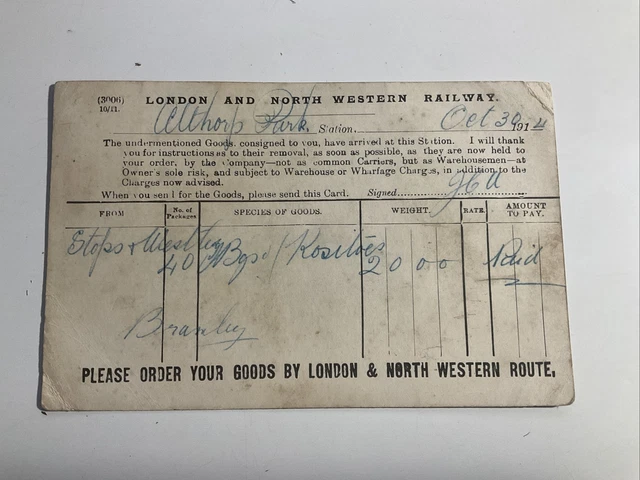 (3006) LONDON AND NORTH WESTERN RAILWAY.
10/11.
Althorp Park, Station Oct 30 1914
The undermentioned Goods, consigned to you, have arrived at this Station. I will thank
you for instructions as to their removal, as soon as possible, as they are now held to
your order, by the Company—not as common Carriers, but as Warehousemen—at
Owner's sole risk, and subject to Warehouse or Wharfage Charges, in addition to the
Charges now advised.
When you send for the Goods, please send this Card. Signed
FROM No. of Packages SPECIES OF GOODS. WEIGHT. RATE. AMOUNT TO PAY.
40 Bgs 2 0 0 0 Paid
PLEASE ORDER YOUR GOODS BY LONDON & NORTH WESTERN ROUTE.